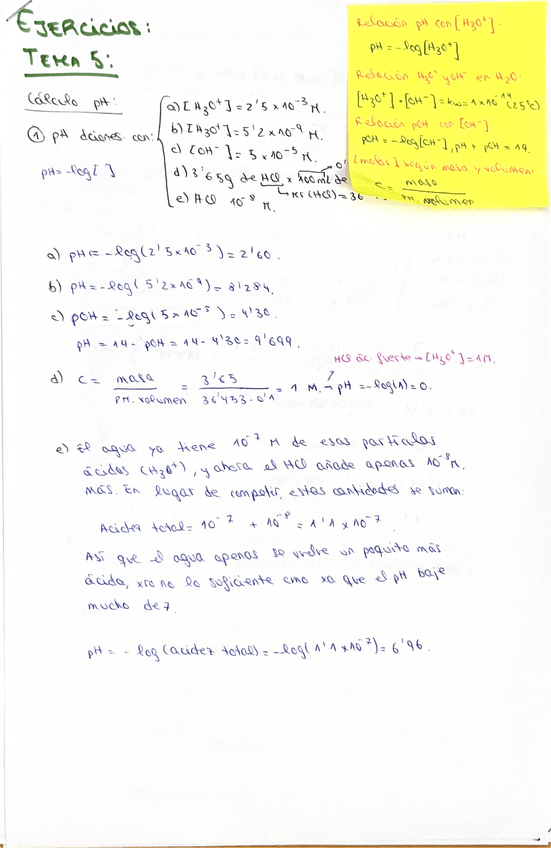 EJERCICIOS:
TEMA 5:
Cálculo pH:
① pH dciones con:
pH=-log[ ]
a) [H3O+] = 2'5 x 10^-3 M.
b) [H3O+] = 5'2 x 10^-9 M.
c) [OH-] = 5 x 10^-5 M.
d) 3'65g de HCl x 100 mL de
Mr (HCl) = 36
e) HCl 10^-8 M.
Relación pH con [H3O+].
pH = -log[H3O+]
Relación H3O+ y OH- en H2O:
[H3O+]·[OH-] = Kw = 1 x 10^-14 (25ºC)
Relación pOH con [OH-]
pOH = -log[OH-], pH + pOH = 14.
[molar] según masa y volumen:
C = masa / PM. volumen
a) pH = -log(2'5 x 10^-3) = 2'60.
b) pH = -log(5'2 x 10^-9) = 8'284.
c) pOH = -log(5 x 10^-5) = 4'30
pH = 14 - pOH = 14 - 4'30 = 9'699.
HCl ác. fuerte → [H3O+] = 1M.
d) C = masa / PM. volumen = 3'65 / 36'453 · 0'1 = 1 M. → pH = -log(1) = 0.
e) El agua ya tiene 10^-7 M de esas partículas
ácidas (H3O+), y ahora el HCl añade apenas 10^-8 M.
más. En lugar de competir, estas cantidades se suman:
Acidez total = 10^-7 + 10^-8 = 1'1 x 10^-7.
Así que el agua apenas se vuelve un poquito más
ácida, xro no lo suficiente cmo xa que el pH baje
mucho de 7.
pH = - log (acidez total) = -log(1'1 x 10^-7) = 6'96.